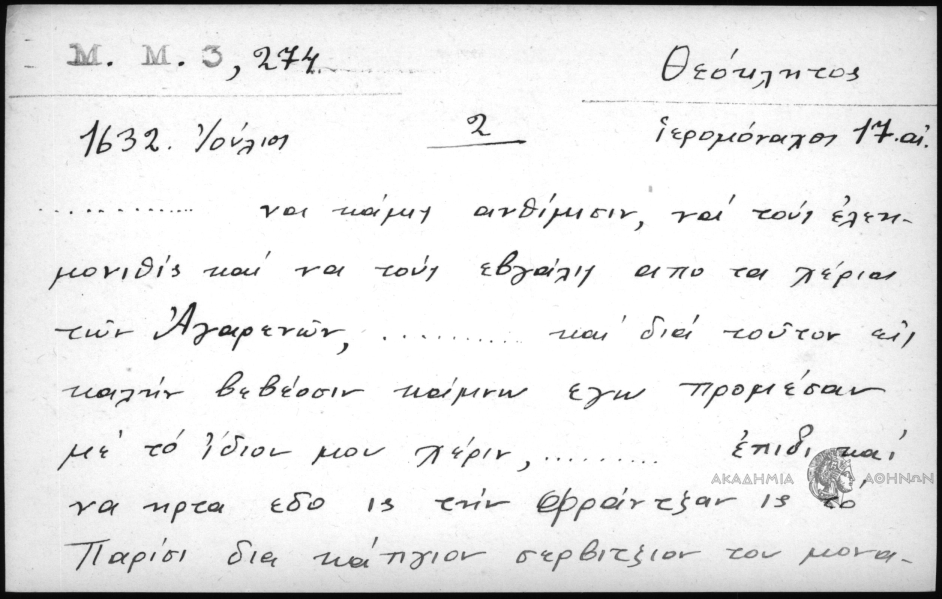 Μ. Μ. 3, 274
Θεόκλητος
1632. Ἰούλιος
2
ἱερομόναχος 17. αἰ.
............. να κάμη ανθίμισιν, νά τούς ἐλεη-
μονιθῖς καί να τούς εβγάλη απο τα χέρια
τῶν Ἀγαρενῶν, .......... καί διά τοῦτον εἰς
καλήν βεβέοσιν κάμνω εγω προμέσαν
μέ τό ἴδιον μου χέριν, ......... ἐπιδι καί
ΑΚΑΔΗΜΙΑ ΑΘΗΝΩΝ
να ηρτα εδο ις τήν Φράντζαν ις το
Παρίσι δια κάπγιον σερβιτζιον του μονα-